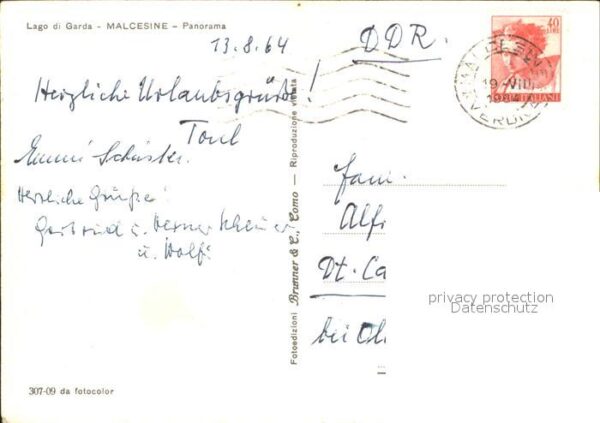 Lago di Garda - MALCESINE - Panorama
13.8.64
DDR.
40
LIRE
MALCESINE
19-VIII.
1964
VERONA
ITALIANE
Herzliche Urlaubsgrüße!
Emmi Schuster.
Herzliche Grüße!
Gertrud u. Werner
u. Wolf
Fam.
Alf
Dt. Ca
bei
Fotoedizioni Brunner & C., Como - Riproduzione vietata
privacy protection
Datenschutz
307-09 da fotocolor